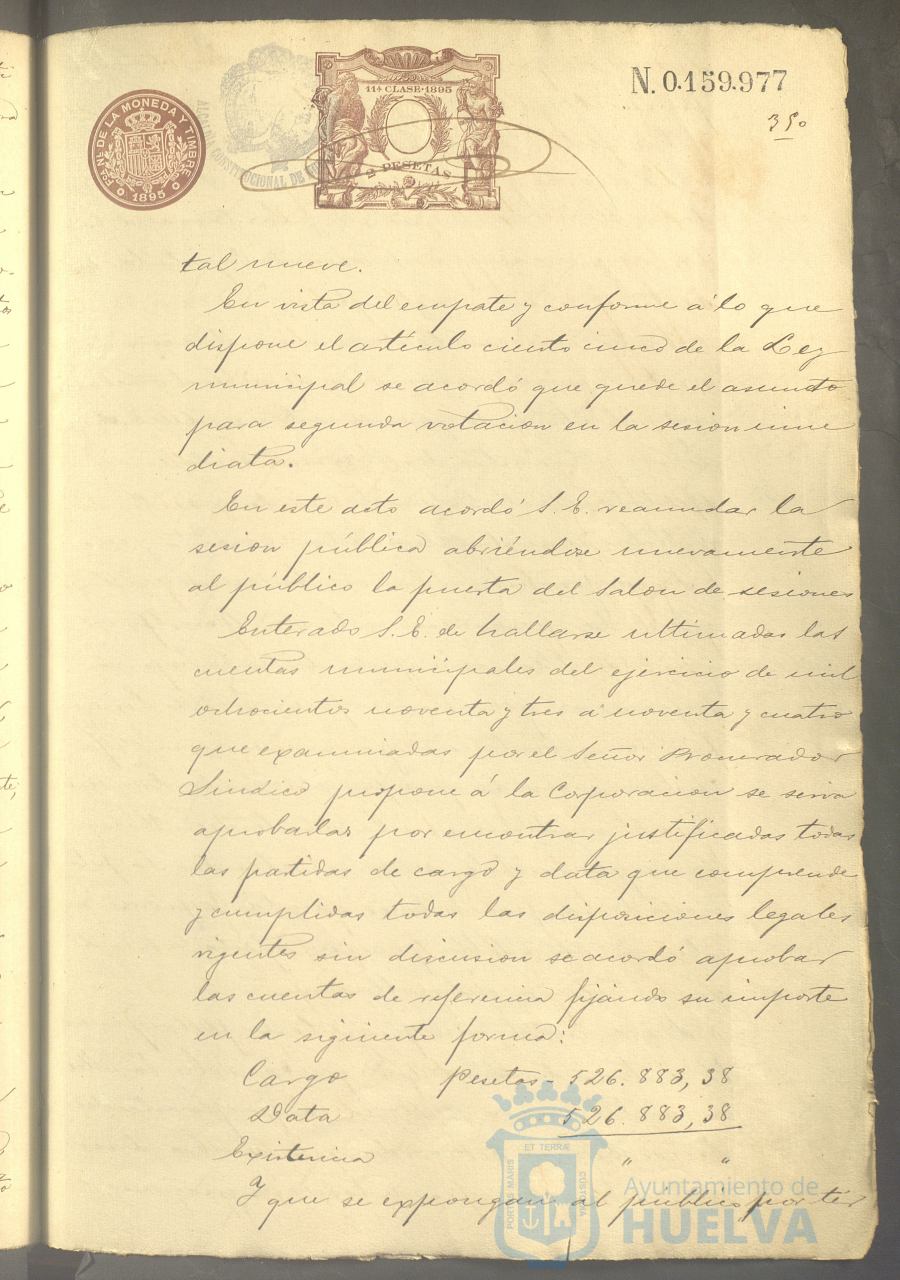 N. 0.159.977
11ª CLASE-1895
2 PESETAS
FCA. NL. DE LA MONEDA Y TIMBRE
1895
CONSTITUCIONAL DE
350
tal nueve.
En vista del empate y conforme á lo que
dispone el artículo ciento cinco de la Ley
municipal se acordó que quede el asunto
para segunda votacion en la sesion inme
diata.
En este acto acordó S. E. reanudar la
sesion pública abriéndose nuevamente
al público la puerta del Salon de sesiones
Enterado S. E. de hallarse ultimadas las
cuentas municipales del ejercicio de mil
ochocientos noventa y tres á noventa y cuatro
que examinadas por el Señor Procurador
Sindico propone á la Corporacion se sirva
aprobarlas por encontrar justificadas todas
las partidas de cargo y data que comprende
y cumplidas todas las disposiciones legales
vigentes sin discusion se acordó aprobar
las cuentas de referencia fijando su importe
en la siguiente forma:
Cargo Pesetas - 526.883,38
Data 526.883,38
Existencia " "
Y que se expongan al público por tér
PORTUS MARIS ET TERRÆ CUSTODIA
Ayuntamiento de
HUELVA